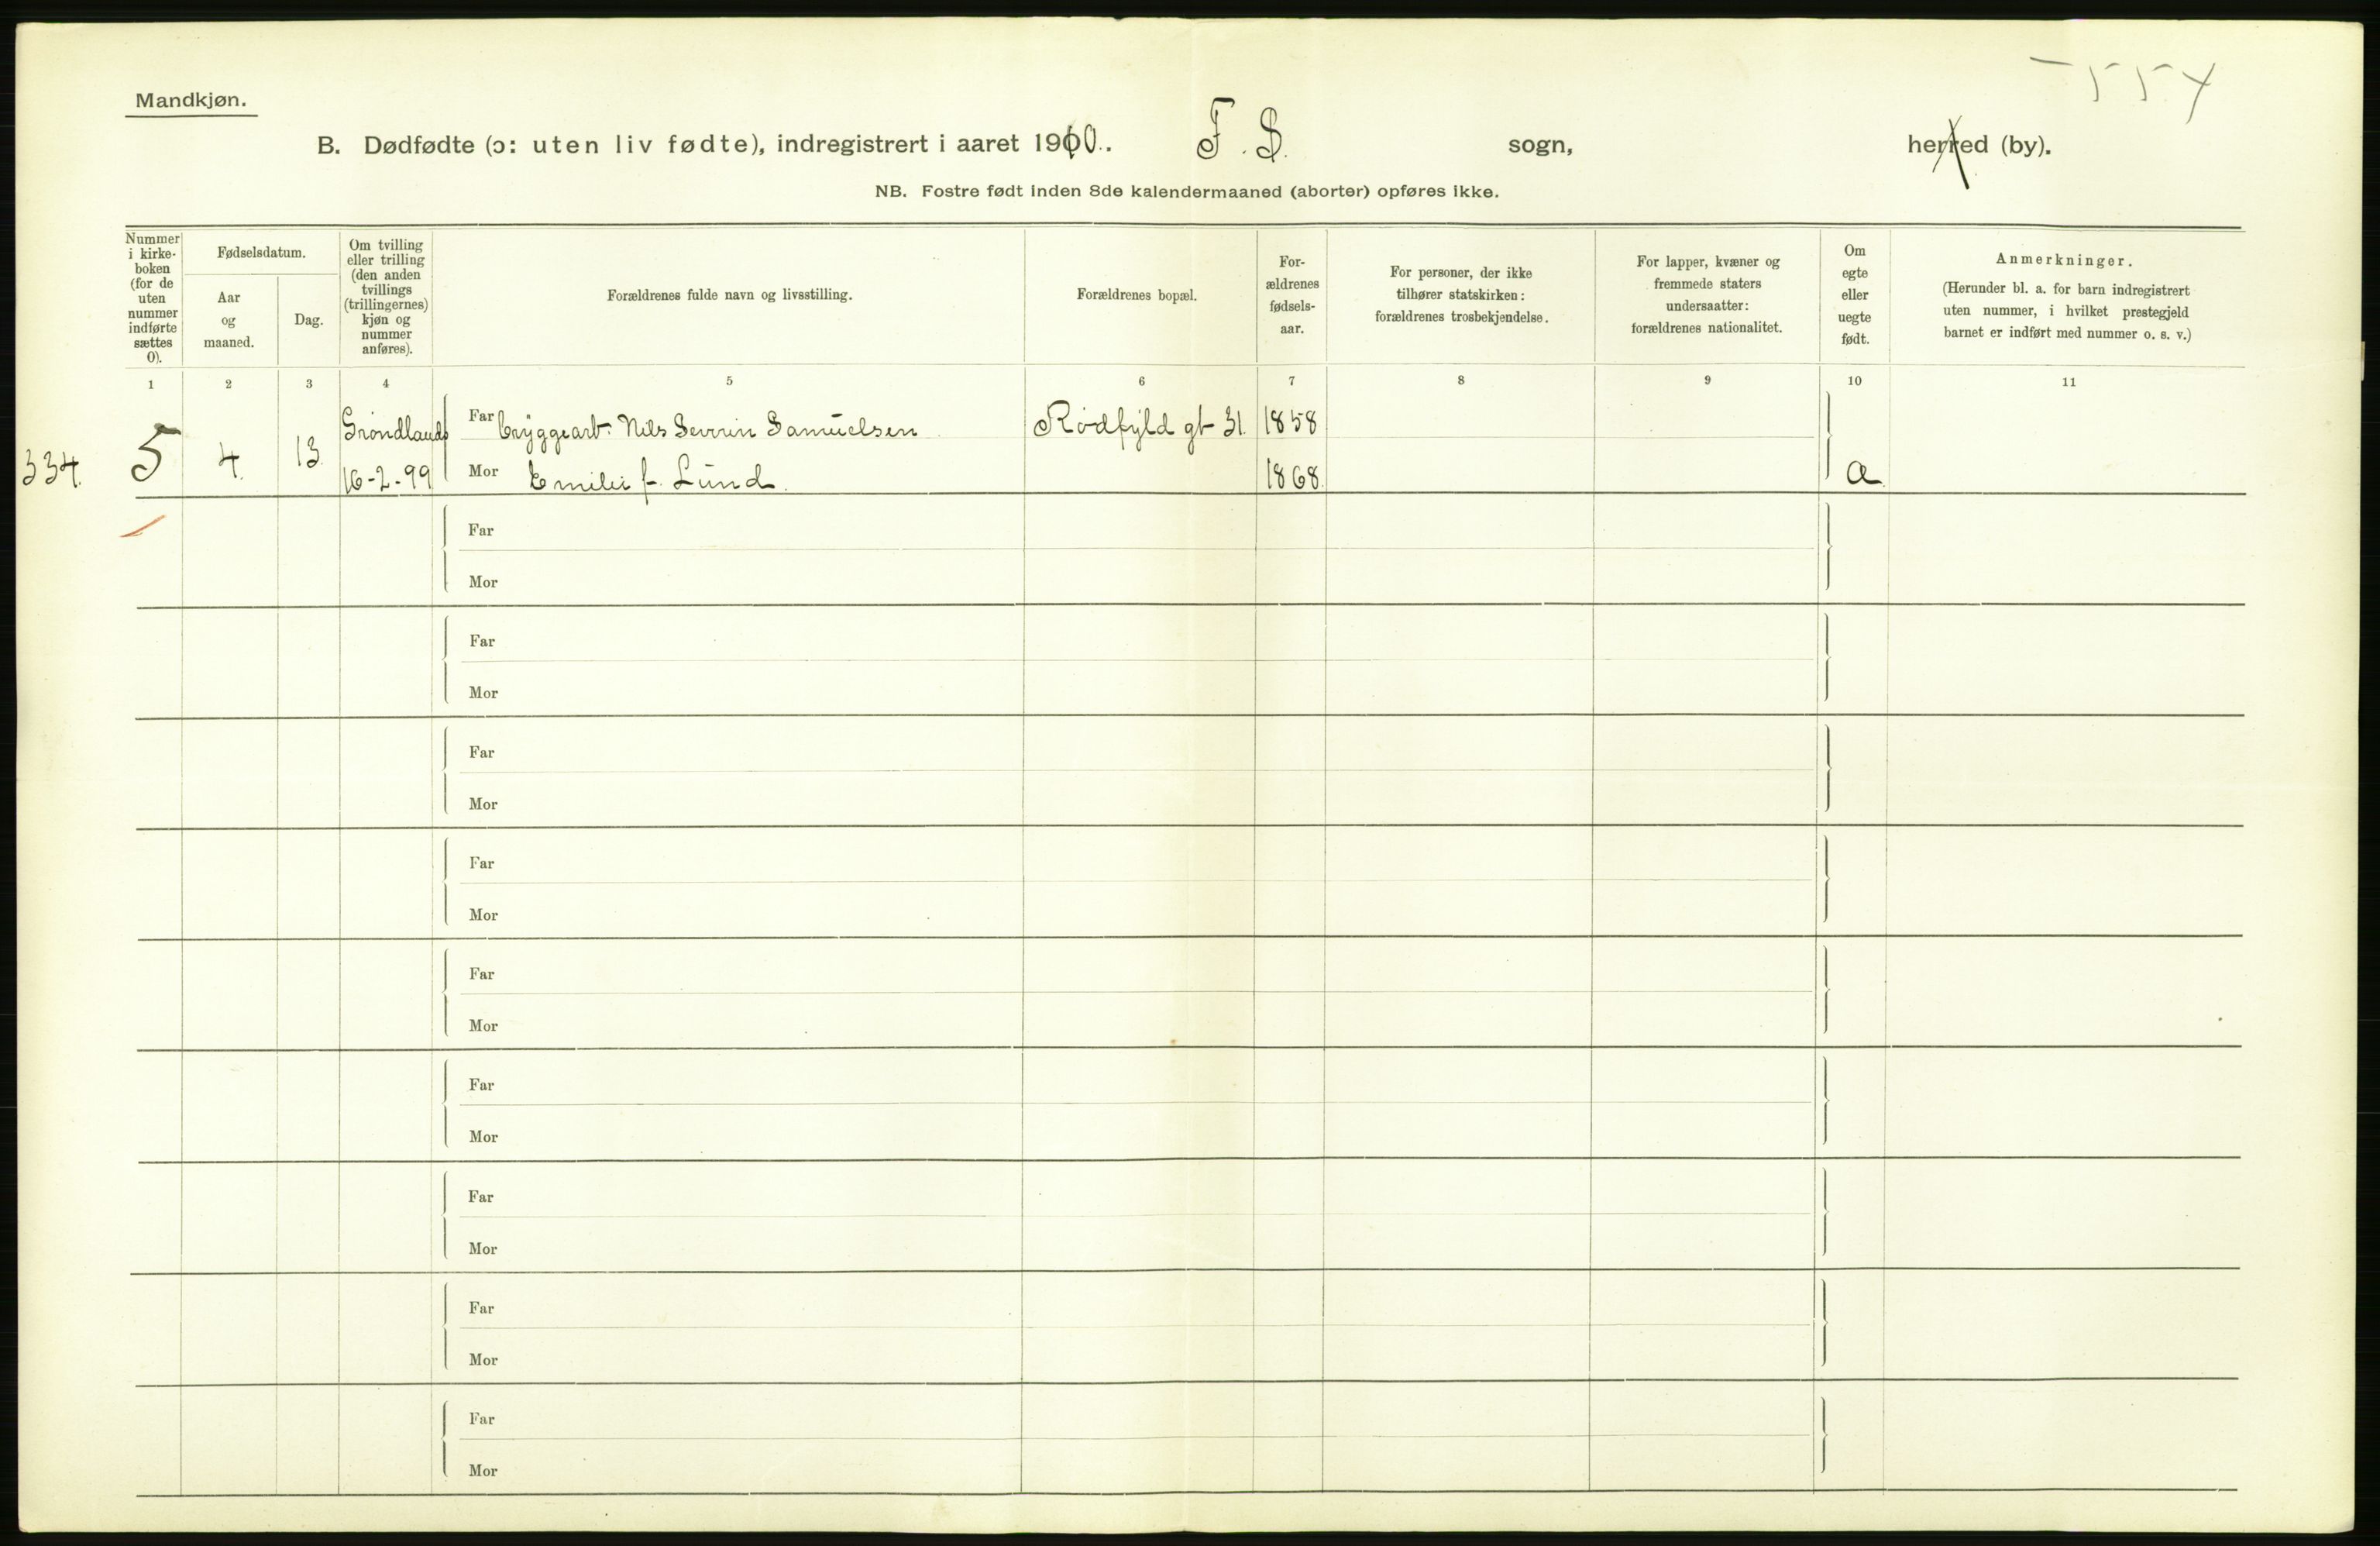 554
Mandkjøn.
B. Dødfødte (ɔ: uten liv fødte), indregistrert i aaret 1910. F. S. sogn, herred (by).
NB. Fostre født inden 8de kalendermaaned (aborter) opføres ikke.
Nummer i kirke-boken (for de uten nummer indførte sættes 0).
Fødselsdatum.
Aar og maaned.
Dag.
Om tvilling eller trilling (den anden tvillings (trillingernes) kjøn og nummer anføres).
Forældrenes fulde navn og livsstilling.
Forældrenes bopæl.
For-ældrenes fødsels-aar.
For personer, der ikke tilhører statskirken: forældrenes trosbekjendelse.
For lapper, kvæner og fremmede staters undersaatter: forældrenes nationalitet.
Om egte eller uegte født.
Anmerkninger.
(Herunder bl. a. for barn indregistrert uten nummer, i hvilket prestegjeld barnet er indført med nummer o. s. v.)
1 2 3 4 5 6 7 8 9 10 11
Grøndlands Far Bryggearb. Nils Severin Samuelsen Rødfyld gt 31. 1858
334. 5 4. 13. 16-2-99 Mor Emilie f. Lund. 1868. a.
Far
Mor
Far
Mor
Far
Mor
Far
Mor
Far
Mor
Far
Mor
Far
Mor
Far
Mor
Far
Mor